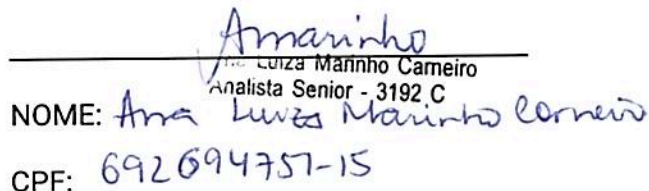 Amarinho
Luiza Marinho Carneiro
Analista Senior - 3192 C
NOME: Ana Luiza Marinho Carneiro
CPF: 692694757-15